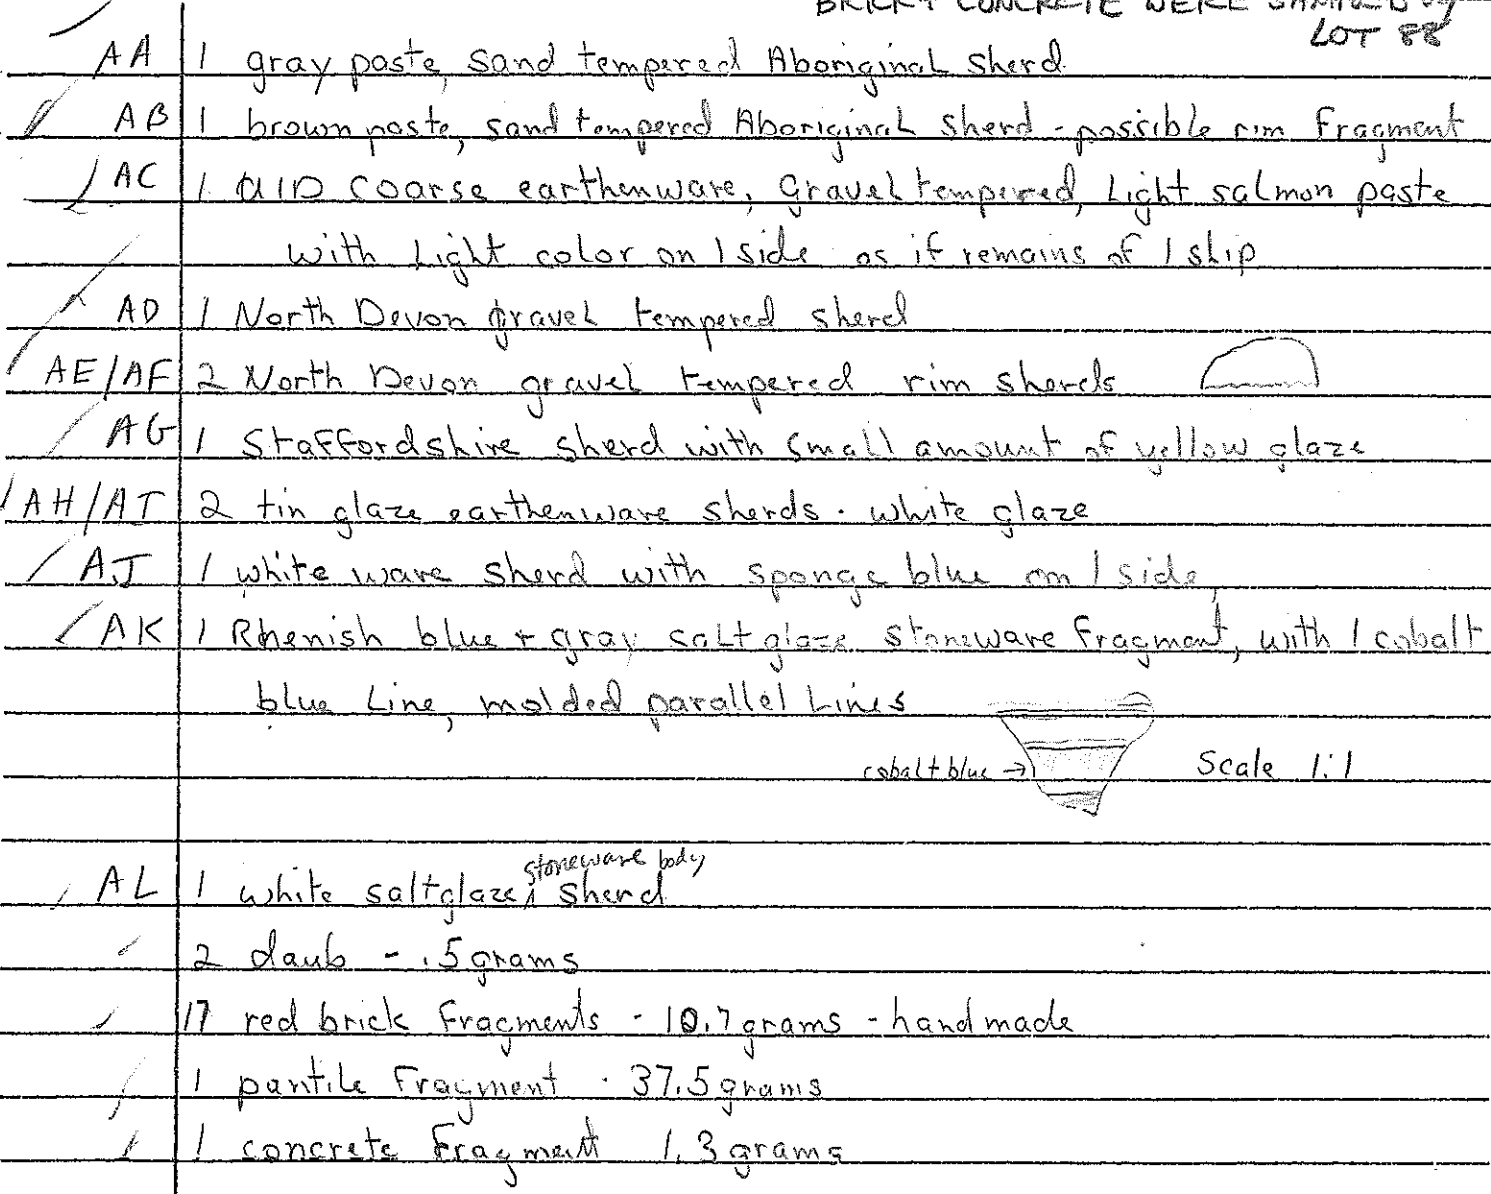 BRICK + CONCRETE WERE SAMPLED
LOT 88
AA 1 gray paste, sand tempered Aboriginal sherd
AB 1 brown paste, sand tempered Aboriginal sherd - possible rim fragment
AC 1 UID coarse earthenware, gravel tempered, light salmon paste
with light color on 1 side as if remains of 1 slip
AD 1 North Devon gravel tempered sherd
AE/AF 2 North Devon gravel tempered rim sherds
AG 1 Staffordshire sherd with small amount of yellow glaze
AH/AI 2 tin glaze earthenware sherds. white glaze
AJ 1 white ware sherd with sponge blue on 1 side
AK 1 Rhenish blue + gray salt glaze stoneware fragment, with 1 cobalt
blue line, molded parallel lines
cobalt blue → Scale 1:1
stoneware body
AL 1 white saltglaze sherd
2 daub - .5 grams
17 red brick fragments - 10.7 grams - handmade
1 pantile fragment - 37.5 grams
1 concrete fragment 1.3 grams